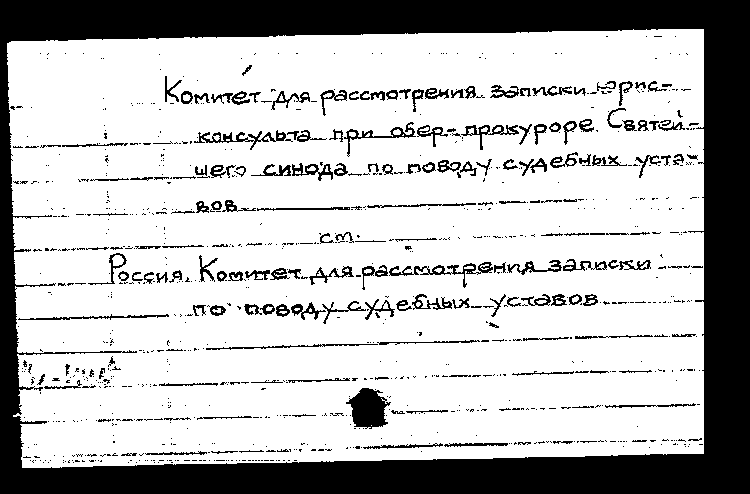 Комитет для рассмотрения записки юрис-
консульта при обер-прокуроре Святей-
шего синода по поводу судебных уста-
вов
см.
Россия. Комитет для рассмотрения записки
по поводу судебных уставов